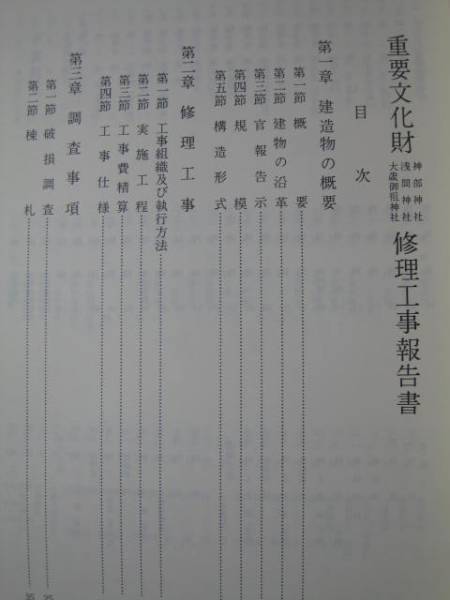 重要文化財 神部神社 浅間神社 大歳御祖神社 修理工事報告書
目次
第一章 建造物の概要
第一節 概要
第二節 建物の沿革
第三節 官報告示
第四節 規模
第五節 構造形式
第二章 修理工事
第一節 工事組織及び執行方法
第二節 実施工程
第三節 工事費精算
第四節 工事仕様
第三章 調査事項
第一節 破損調査
第二節 棟札